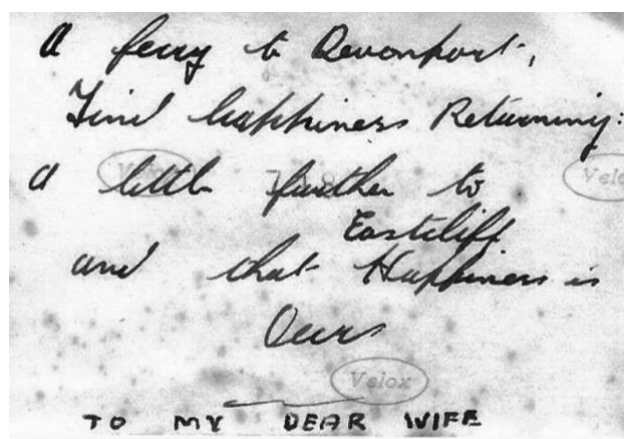 A ferry to Devonport,
Find happiness Returning:
A little further to
Eastcliff
and that Happiness is
Ours
Velox
Velox
Velox
TO MY DEAR WIFE